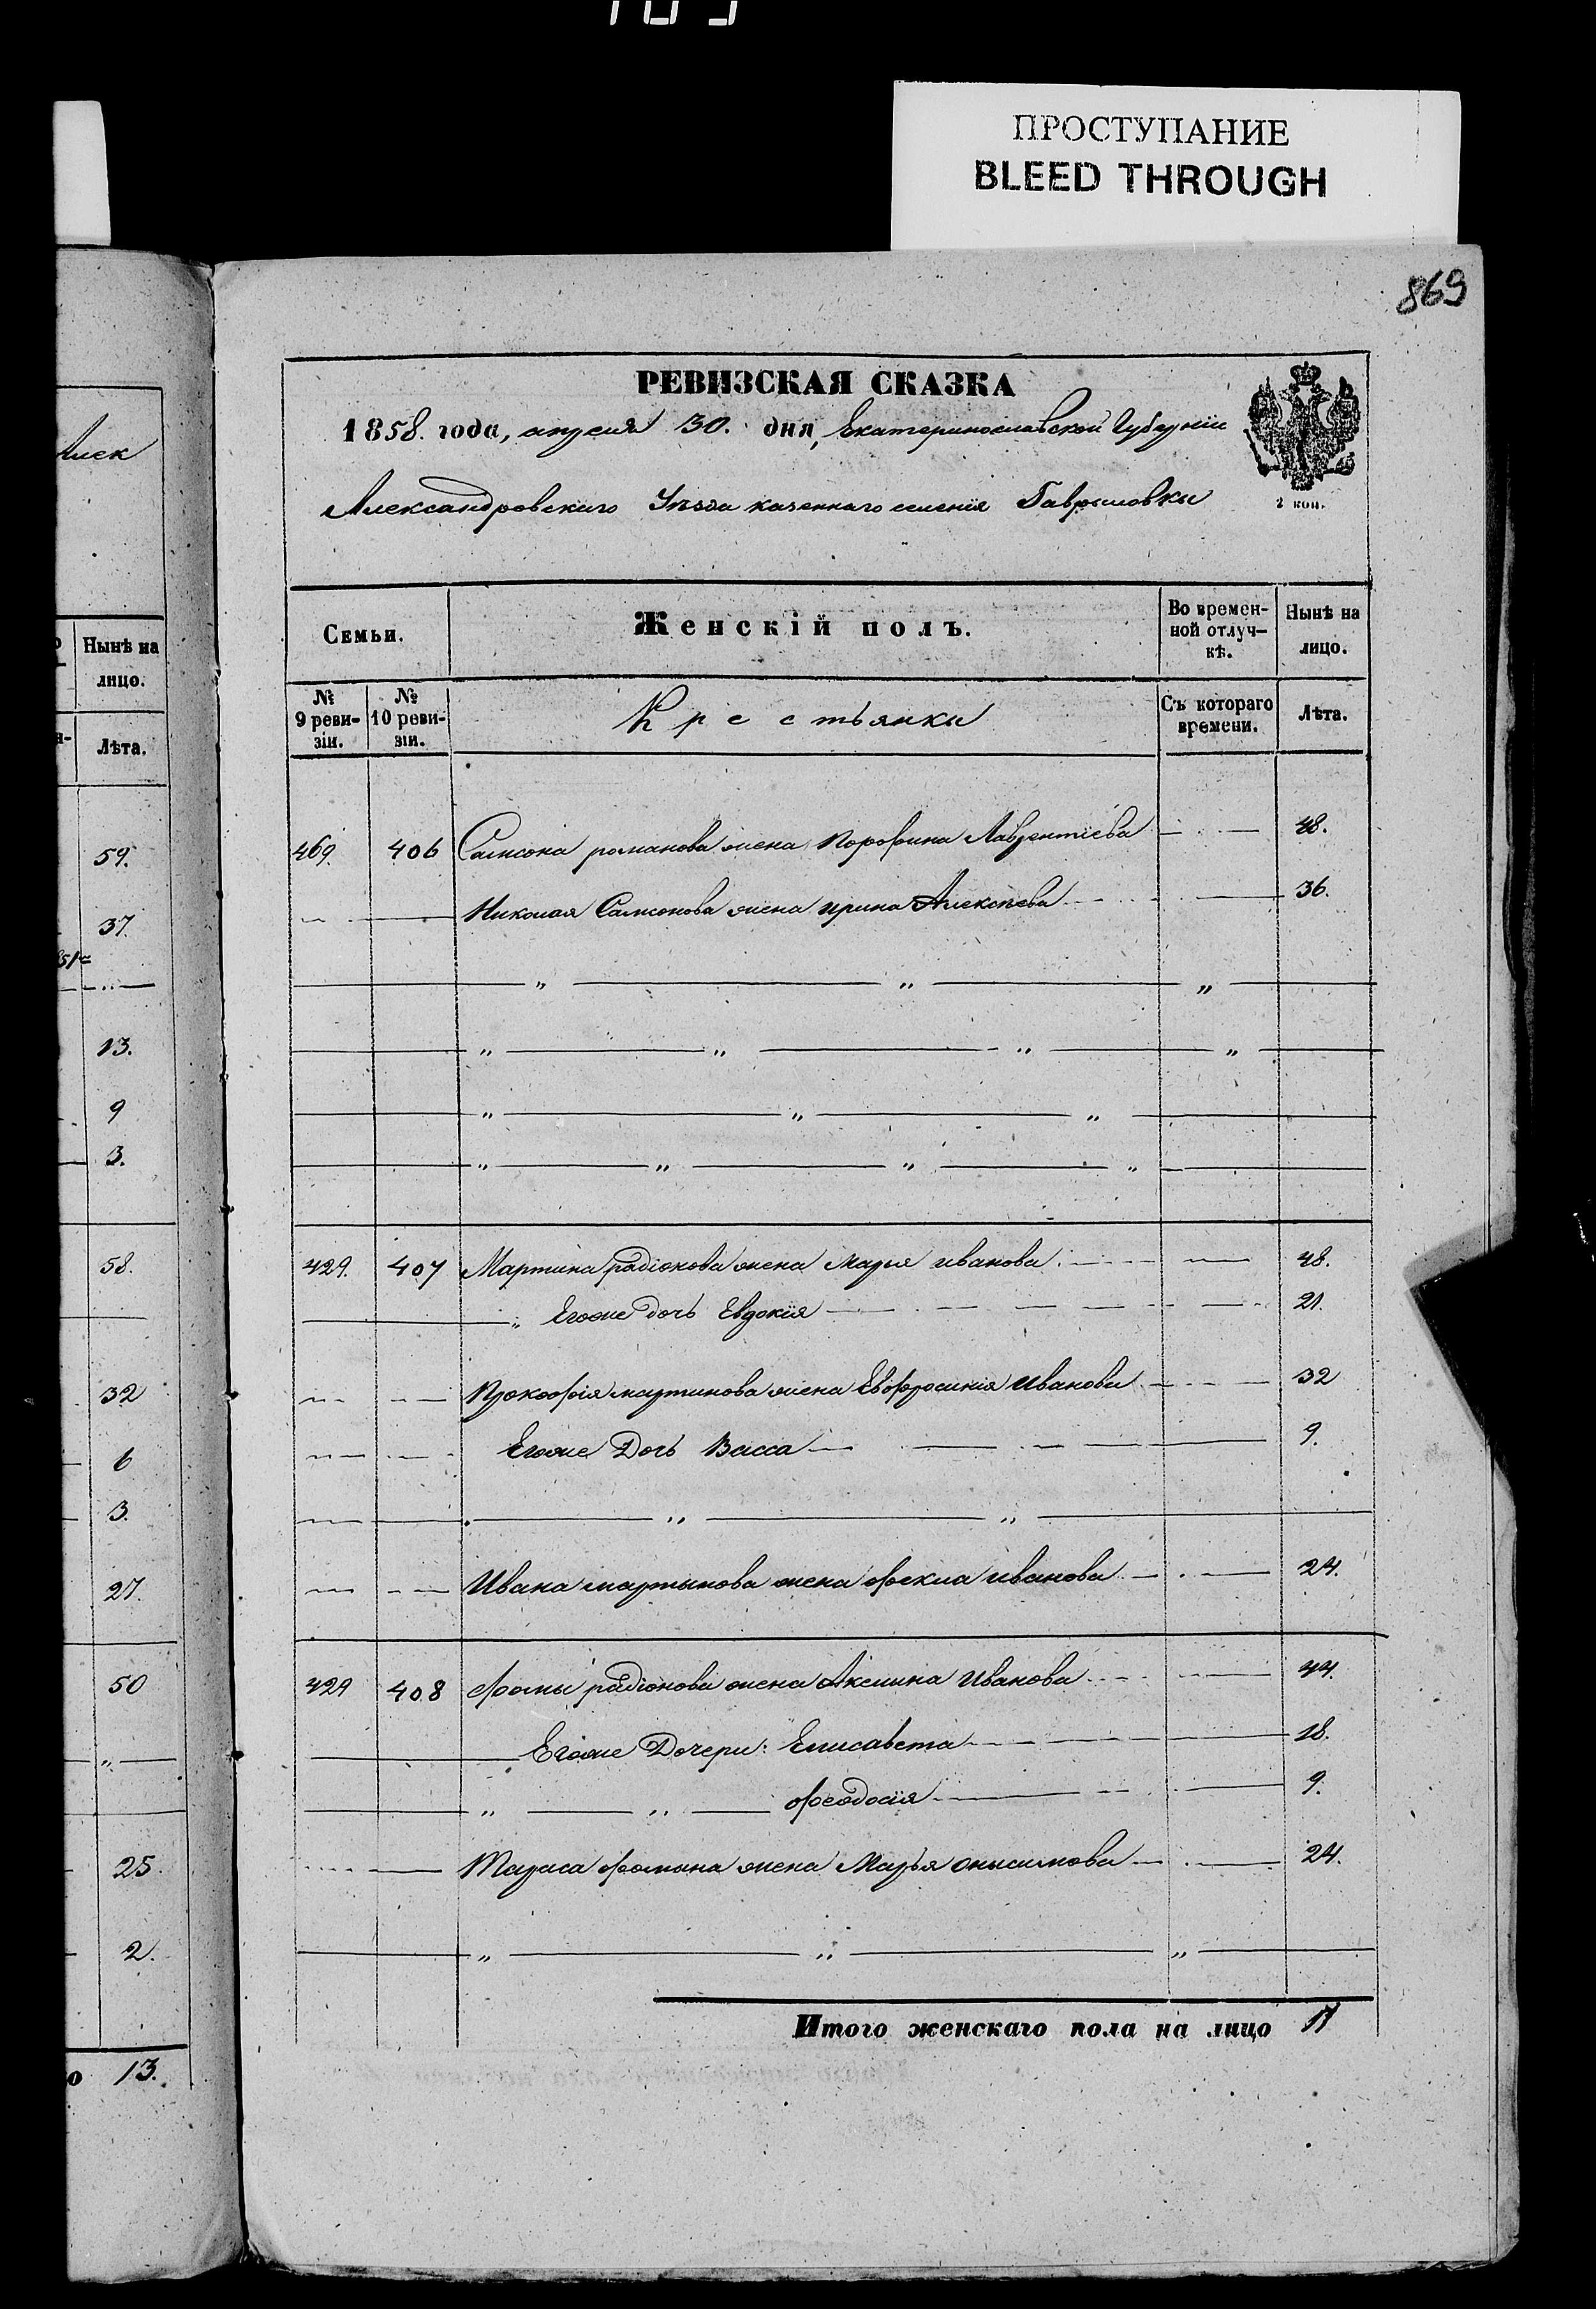 ПРОСТУПАНИЕ
BLEED THROUGH
869
РЕВИЗСКАЯ СКАЗКА
1858. года, апреля 30. дня, Екатеринославской Губерніи
Александровскаго Уезда казеннаго селенія Гавриловки
2 коп.
Семьи.
Женскій полъ.
Во времен-
ной отлуч-
кѣ.
Нынѣ на
лицо.
№
9 реви-
зіи.
№
10 реви-
зіи.
Крестьянки
Съ котораго
времени.
Лѣта.
469. 406 Самсона романова жена Порофина Лаврентіева 48.
Николая Самсонова жена ирина Алексѣева 36.
429. 407 Мартина радіонова жена марья иванова 48.
Егоже дочь Евдокія 21.
Прокофія мартинова жена Евфросинія Иванова 32
Егоже Дочь Васса 9.
Ивана мартынова жена фекла иванова 24.
429 408 фомы радіонова жена Акилина Иванова 44.
Егоже Дочери: Елисавета 18.
феодосія 9.
Тараса фомина жена Марья онисимова 24.
Итого женскаго пола на лицо 11
Алек
Нынѣ на
лицо.
Лѣта.
59.
37.
13.
9
3.
58.
32
6
3.
27.
50
25.
2.
о 13.